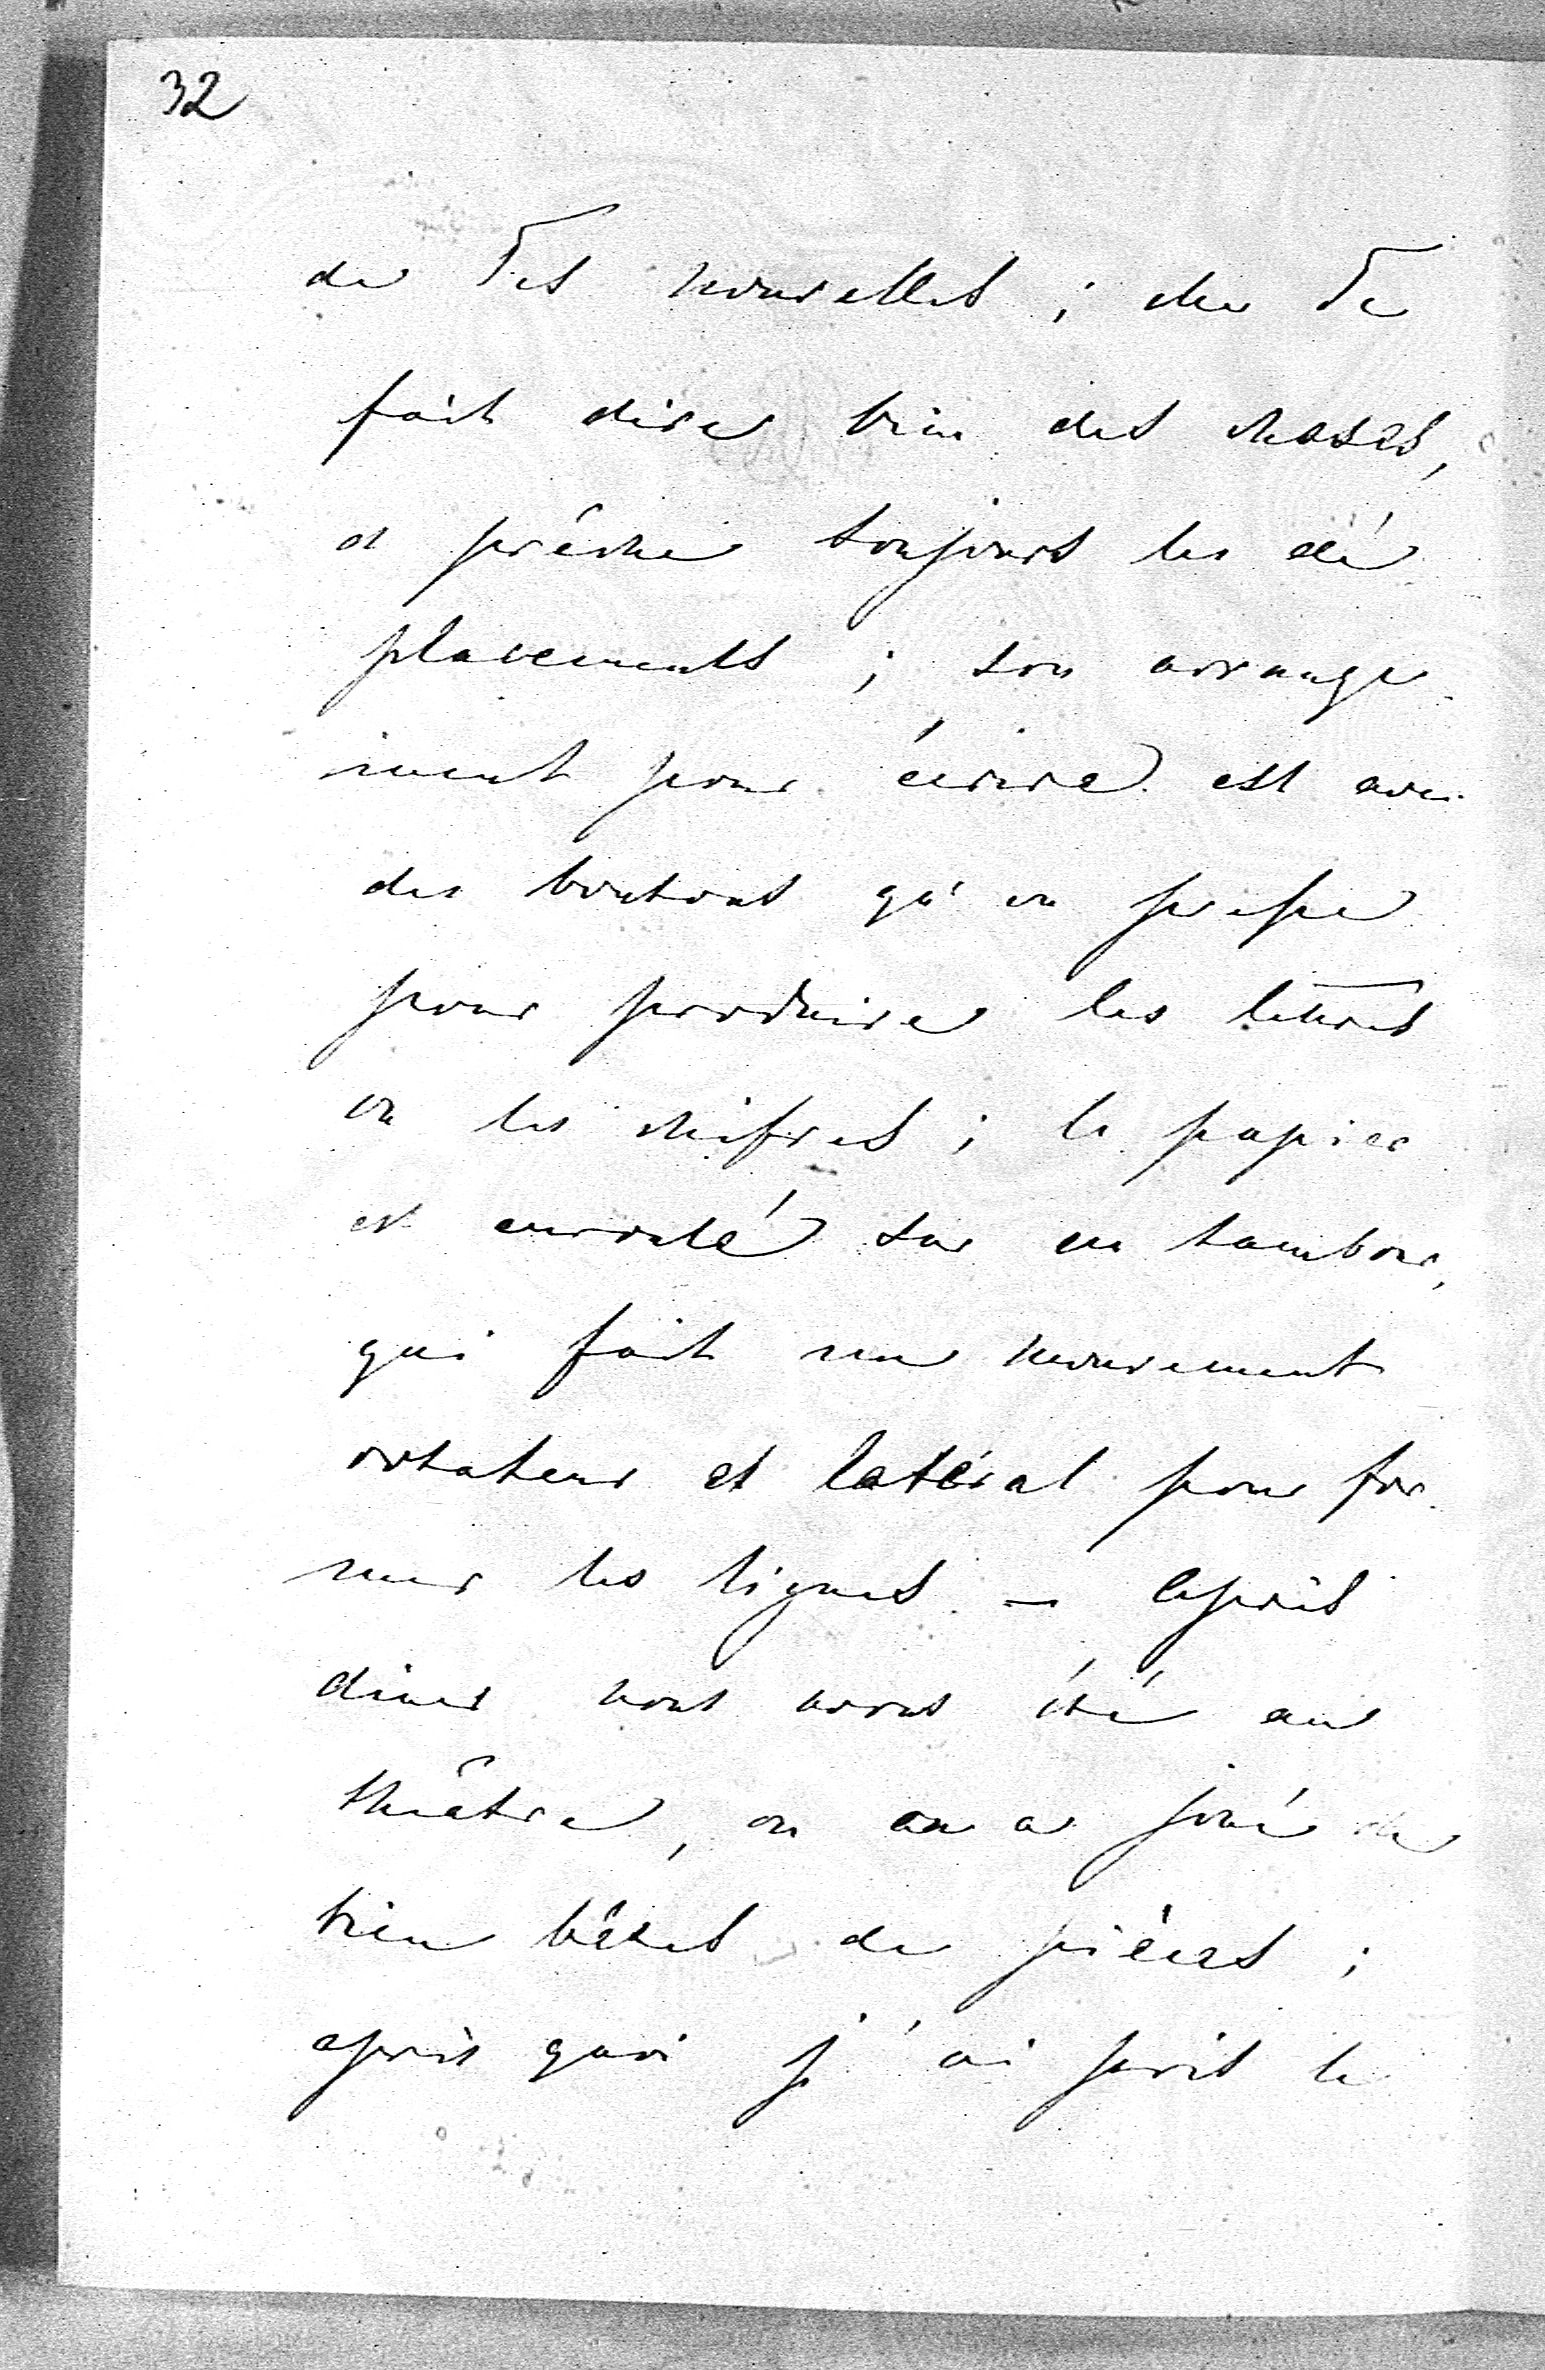 32
de Tes nouvelles ; elle Te
fait dire bien des choses,
et prêche toujours les dé
placements ; son arrange
ment pour écrire est avec
des boutons qu'on presse
pour produire les lettres
ou les chifres ; le papier
est enroulé sur un tambour,
qui fait un mouvement
rotateur et latéral pour for
mer les lignes – Après
diner nous avons été au
théâtre, on en a joué de
bien bêtes de pièces ;
après quoi j'ai pris le